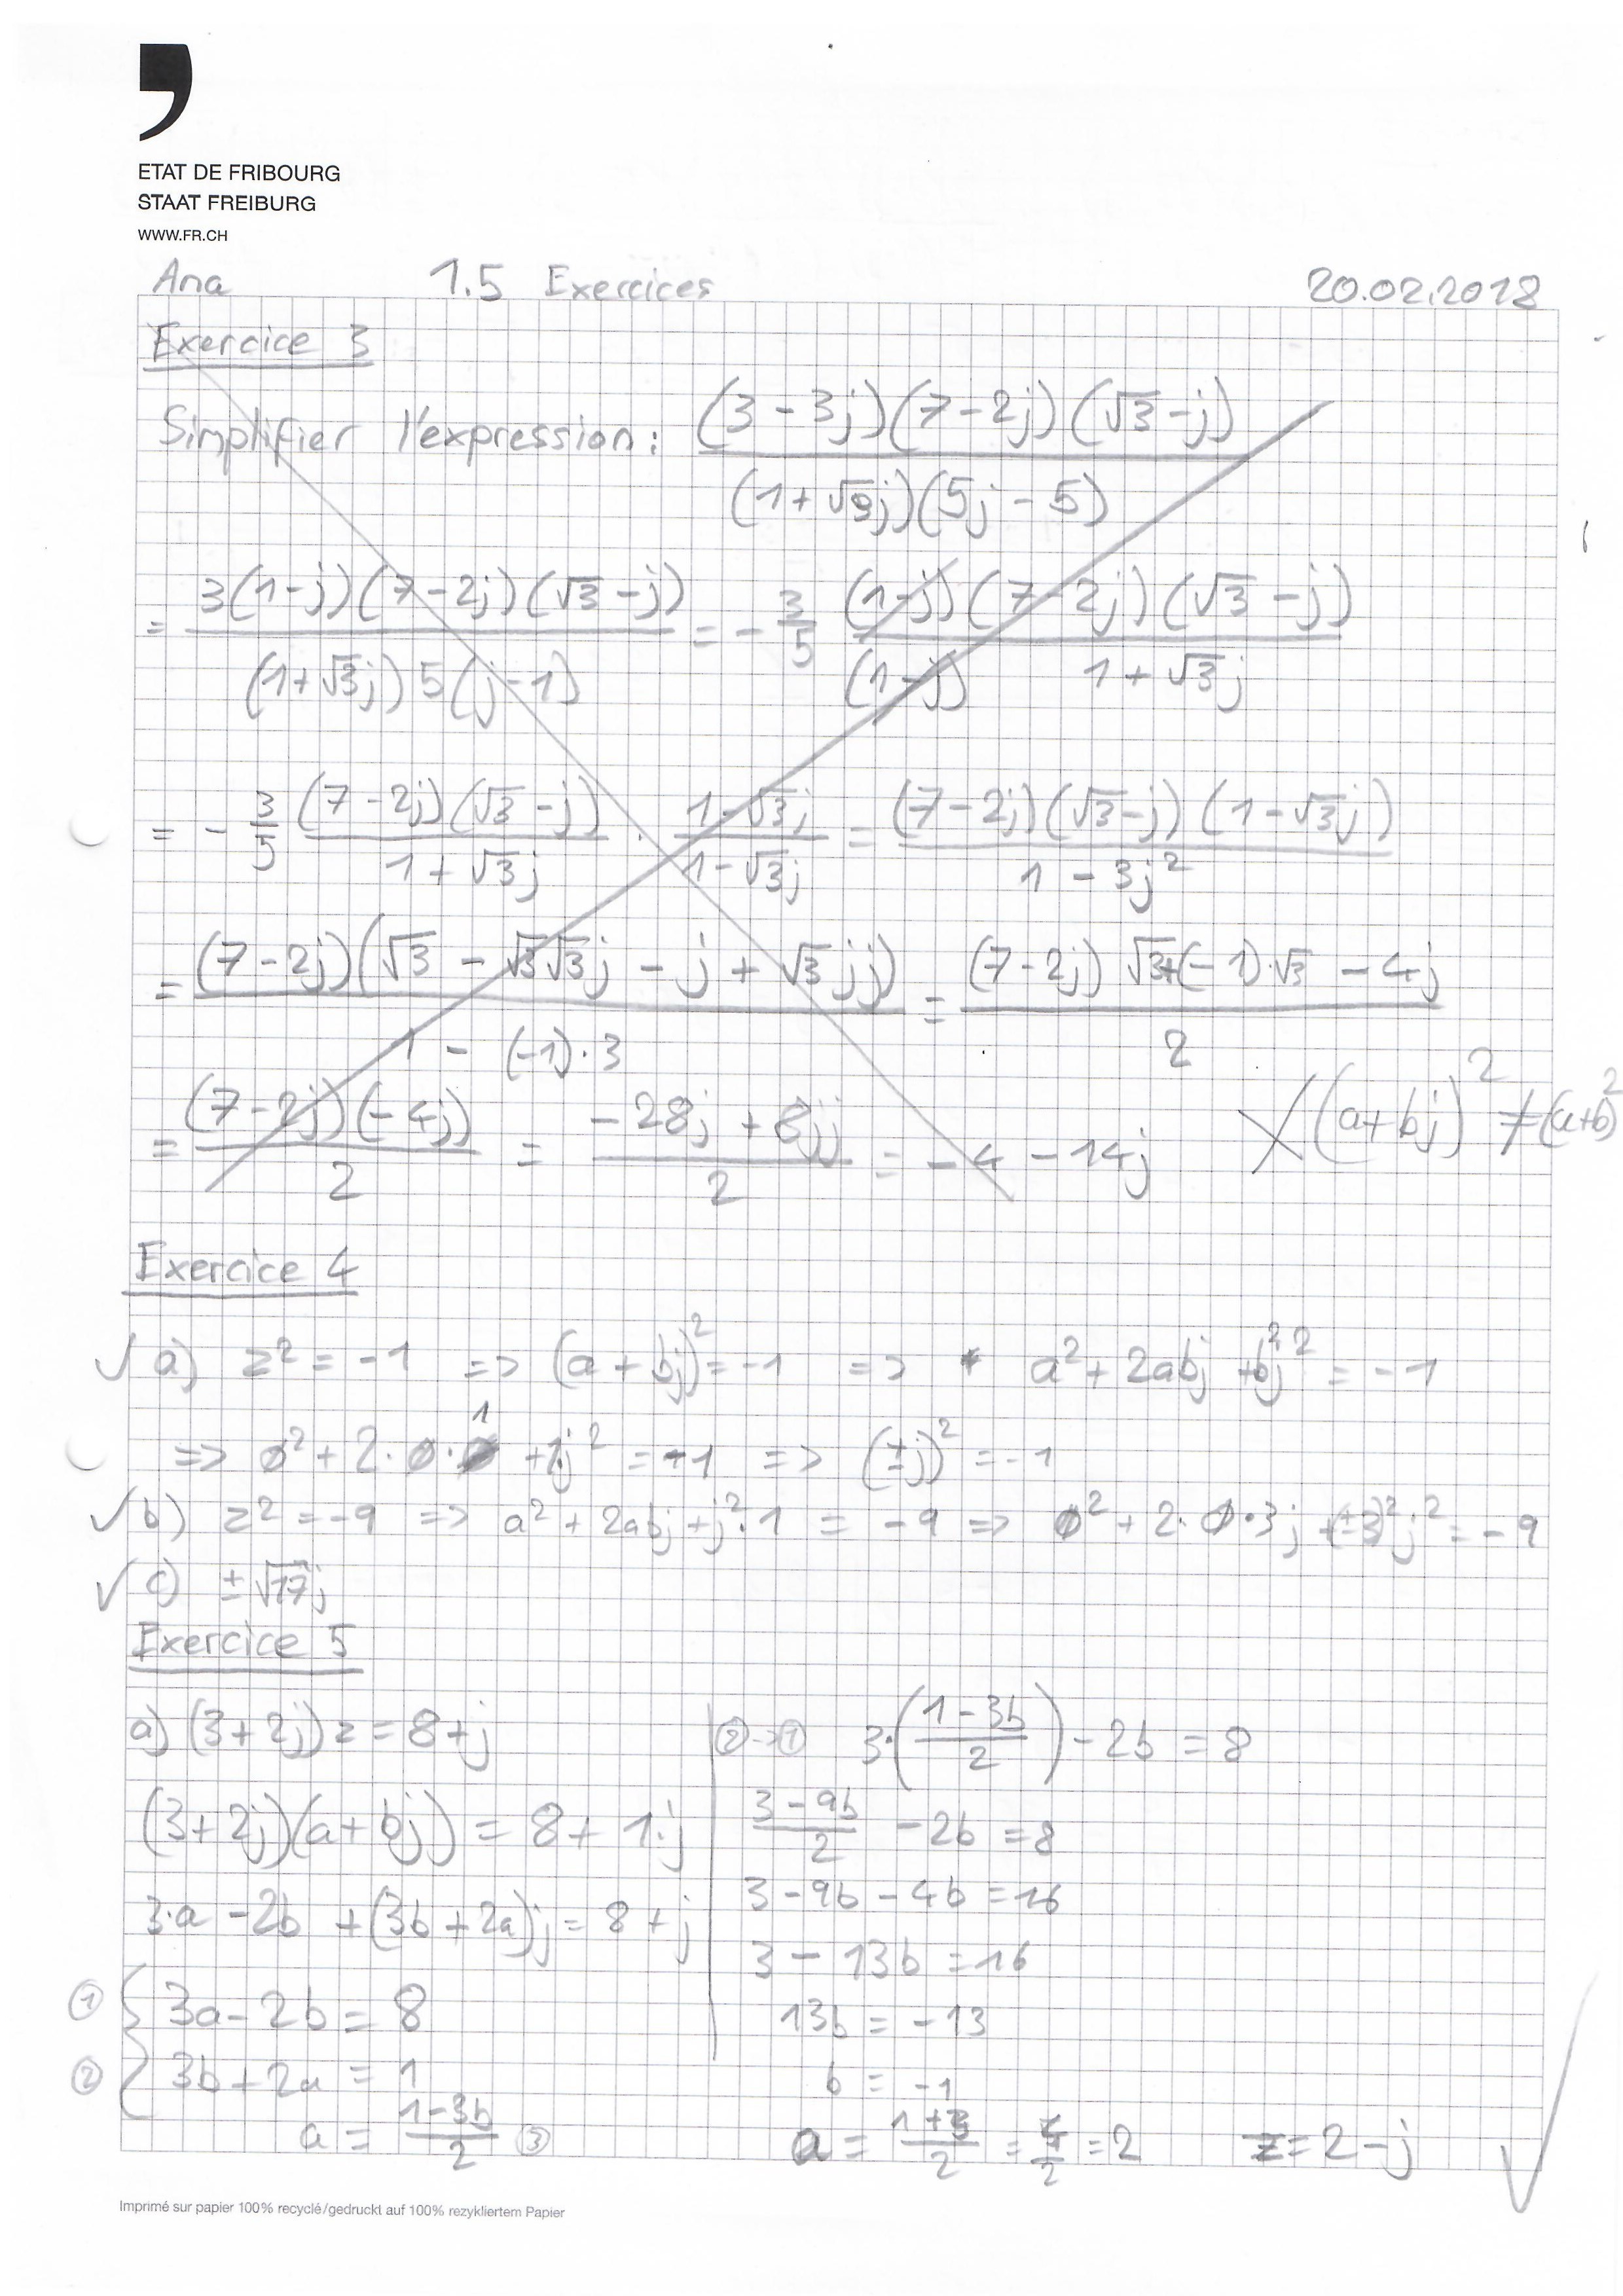 ETAT DE FRIBOURG
STAAT FREIBURG
WWW.FR.CH
Ana 1.5 Exercices 20.02.2018
Exercice 3
Simplifier l'expression: (3-3j)(7-2j)(√3-j) / (1+√3j)(5j-5)
= 3(1-j)(7-2j)(√3-j) / (1+√3j)5(j-1) = -3/5 (1-j)(7-2j)(√3-j) / (1-j) 1+√3j
= -3/5 (7-2j)(√3-j) / 1+√3j · 1-√3j / 1-√3j = (7-2j)(√3-j)(1-√3j) / 1-3j²
= (7-2j)(√3-√3√3j-j+√3jj) / 1-(-1)·3 = (7-2j)√3+(-1)·√3-4j / 2
= (7-2j)(-4j) / 2 = -28j+8jj / 2 = -4-14j (a+bj)² ≠ (a+b)²
Exercice 4
√ a) z² = -1 => (a+bj)² = -1 => a²+2abj+b²j² = -1
=> 0²+2·0·1+1j² = -1 => (±j)² = -1
√ b) z² = -9 => a²+2abj+j²·1 = -9 => 0²+2·0·3j+(±3)²j² = -9
√ c) ±√17j
Exercice 5
a) (3+2j)z = 8+j
(3+2j)(a+bj) = 8+1·j
3·a-2b+(3b+2a)j = 8+j
① 3a-2b = 8
② 3b+2a = 1
a = 1-3b / 2 ③
②→① 3·(1-3b / 2)-2b = 8
3-9b / 2 -2b = 8
3-9b-4b = 16
3-13b = 16
13b = -13
b = -1
a = 1+3 / 2 = 4/2 = 2 z = 2-j
Imprimé sur papier 100% recyclé/gedruckt auf 100% rezykliertem Papier